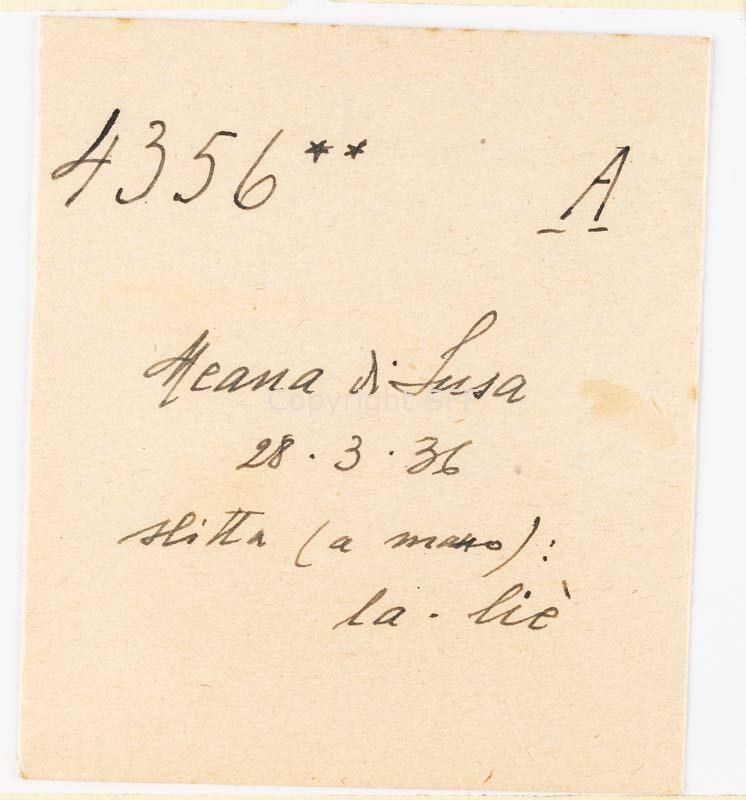 4356** A
Meana di Susa
28.3.36
slitta (a mano):
la. liè